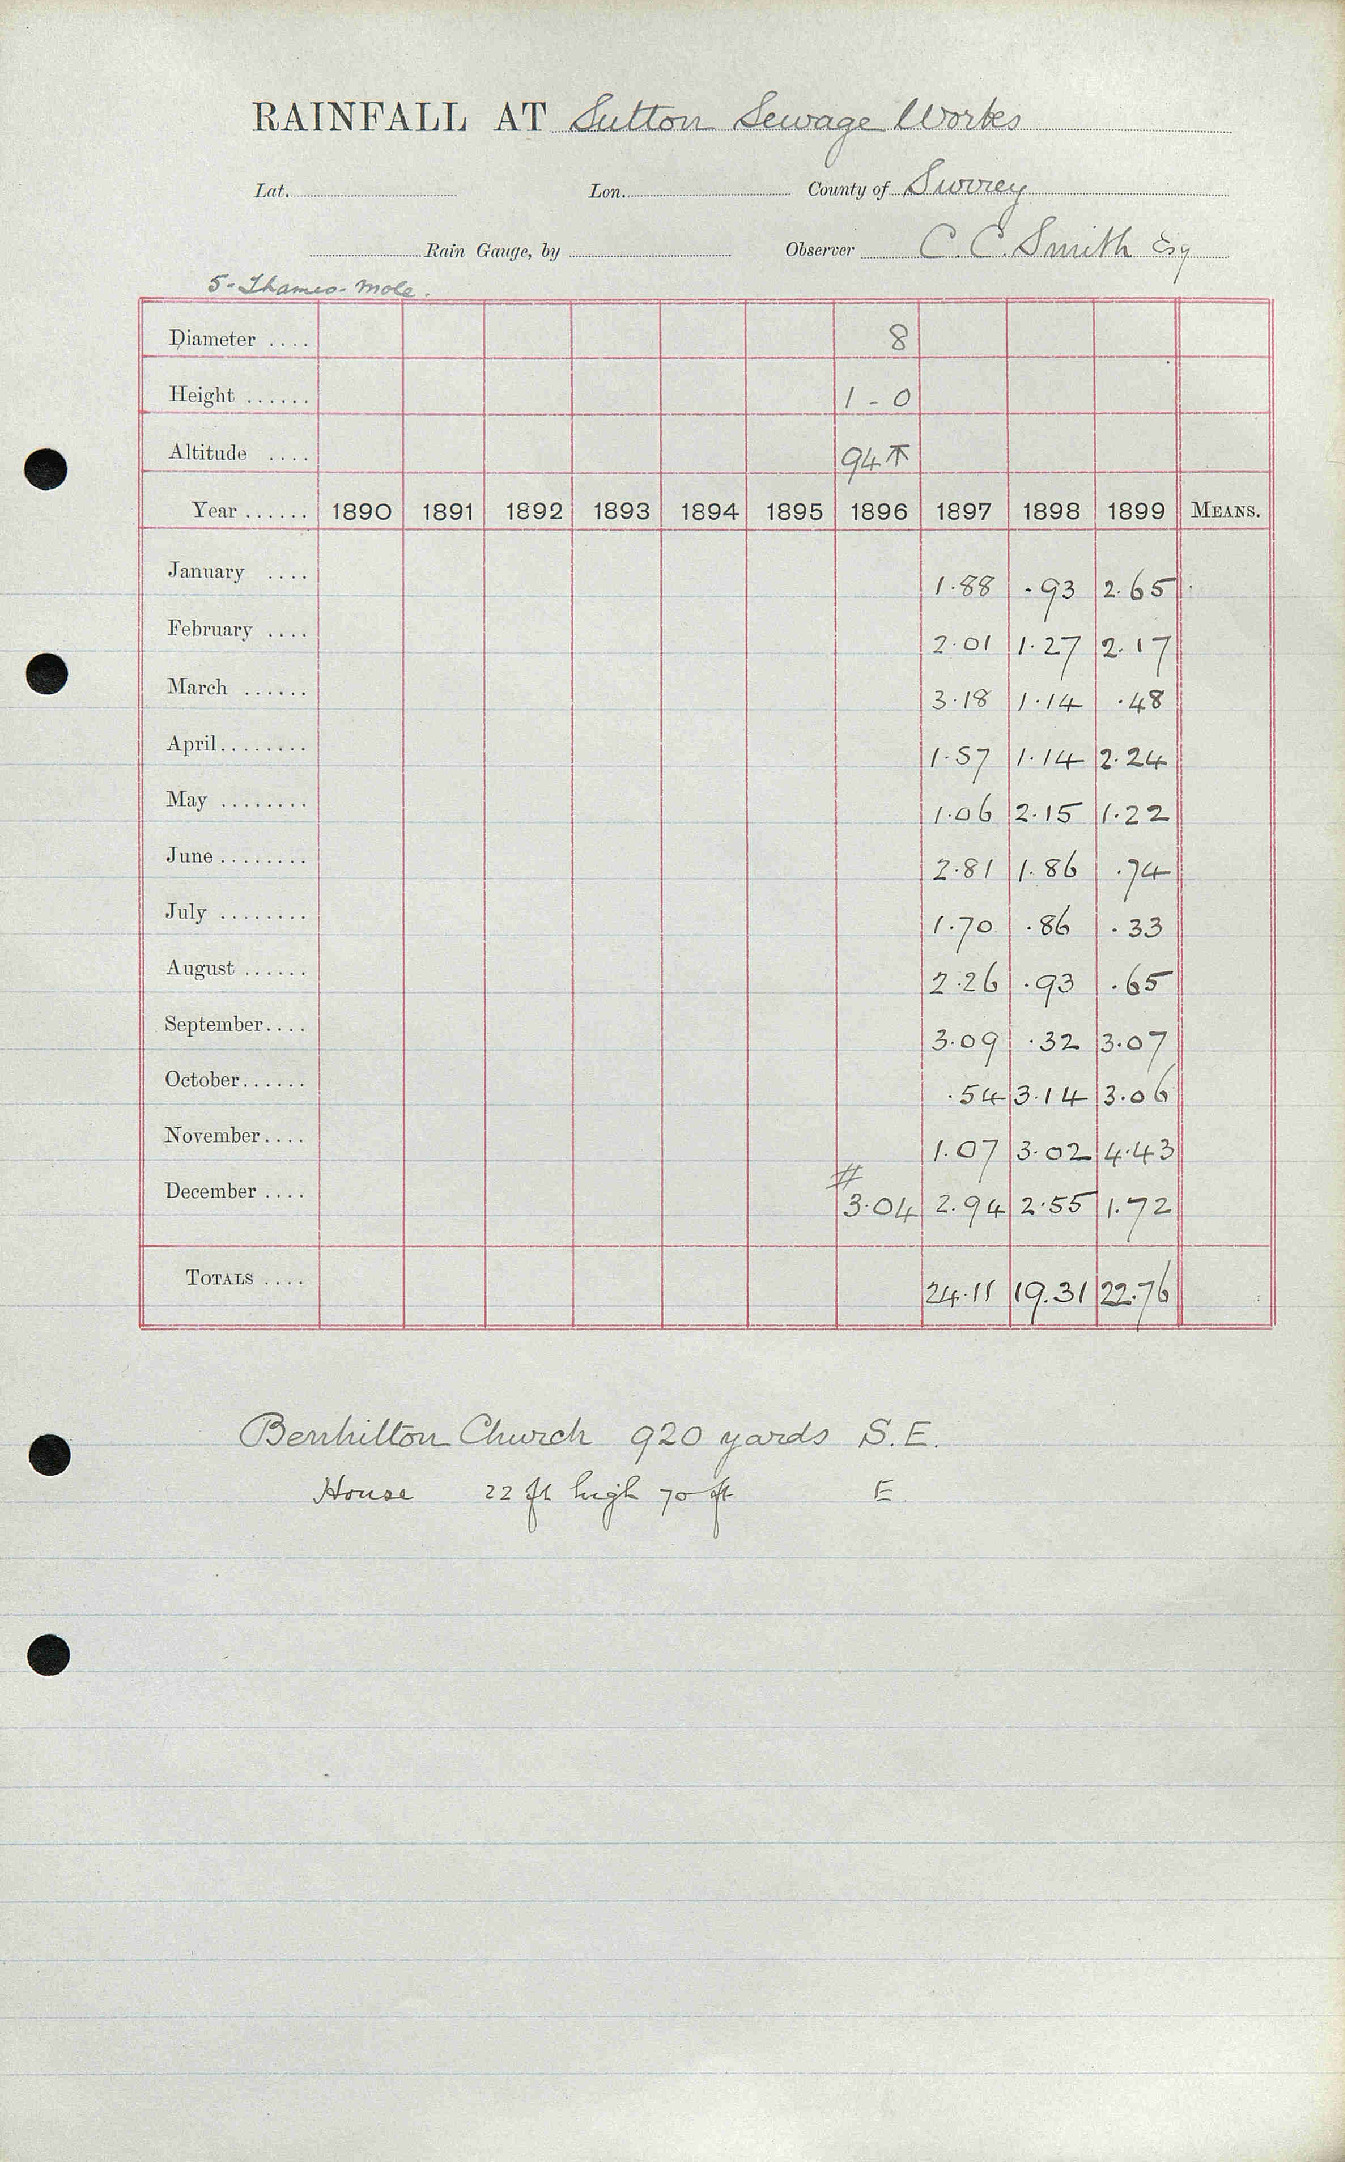 RAINFALL AT Sutton Sewage Works
Lat. Lon. County of Surrey
Rain Gauge, by Observer C. C. Smith Esq
5-Thames-Mole.
Diameter .... 8
Height ...... 1 - 0
Altitude .... 94
Year ...... 1890 1891 1892 1893 1894 1895 1896 1897 1898 1899 MEANS.
January .... 1.88 .93 2.65
February .... 2.01 1.27 2.17
March ...... 3.18 1.14 .48
April ........ 1.57 1.14 2.24
May ........ 1.06 2.15 1.22
June ........ 2.81 1.86 .74
July ........ 1.70 .86 .33
August ...... 2.26 .93 .65
September .... 3.09 .32 3.07
October ...... .54 3.14 3.06
November .... 1.07 3.02 4.43
December .... # 3.04 2.94 2.55 1.72
TOTALS .... 24.11 19.31 22.76
Benhilton Church 920 yards S.E.
House 22 ft high 70 ft E